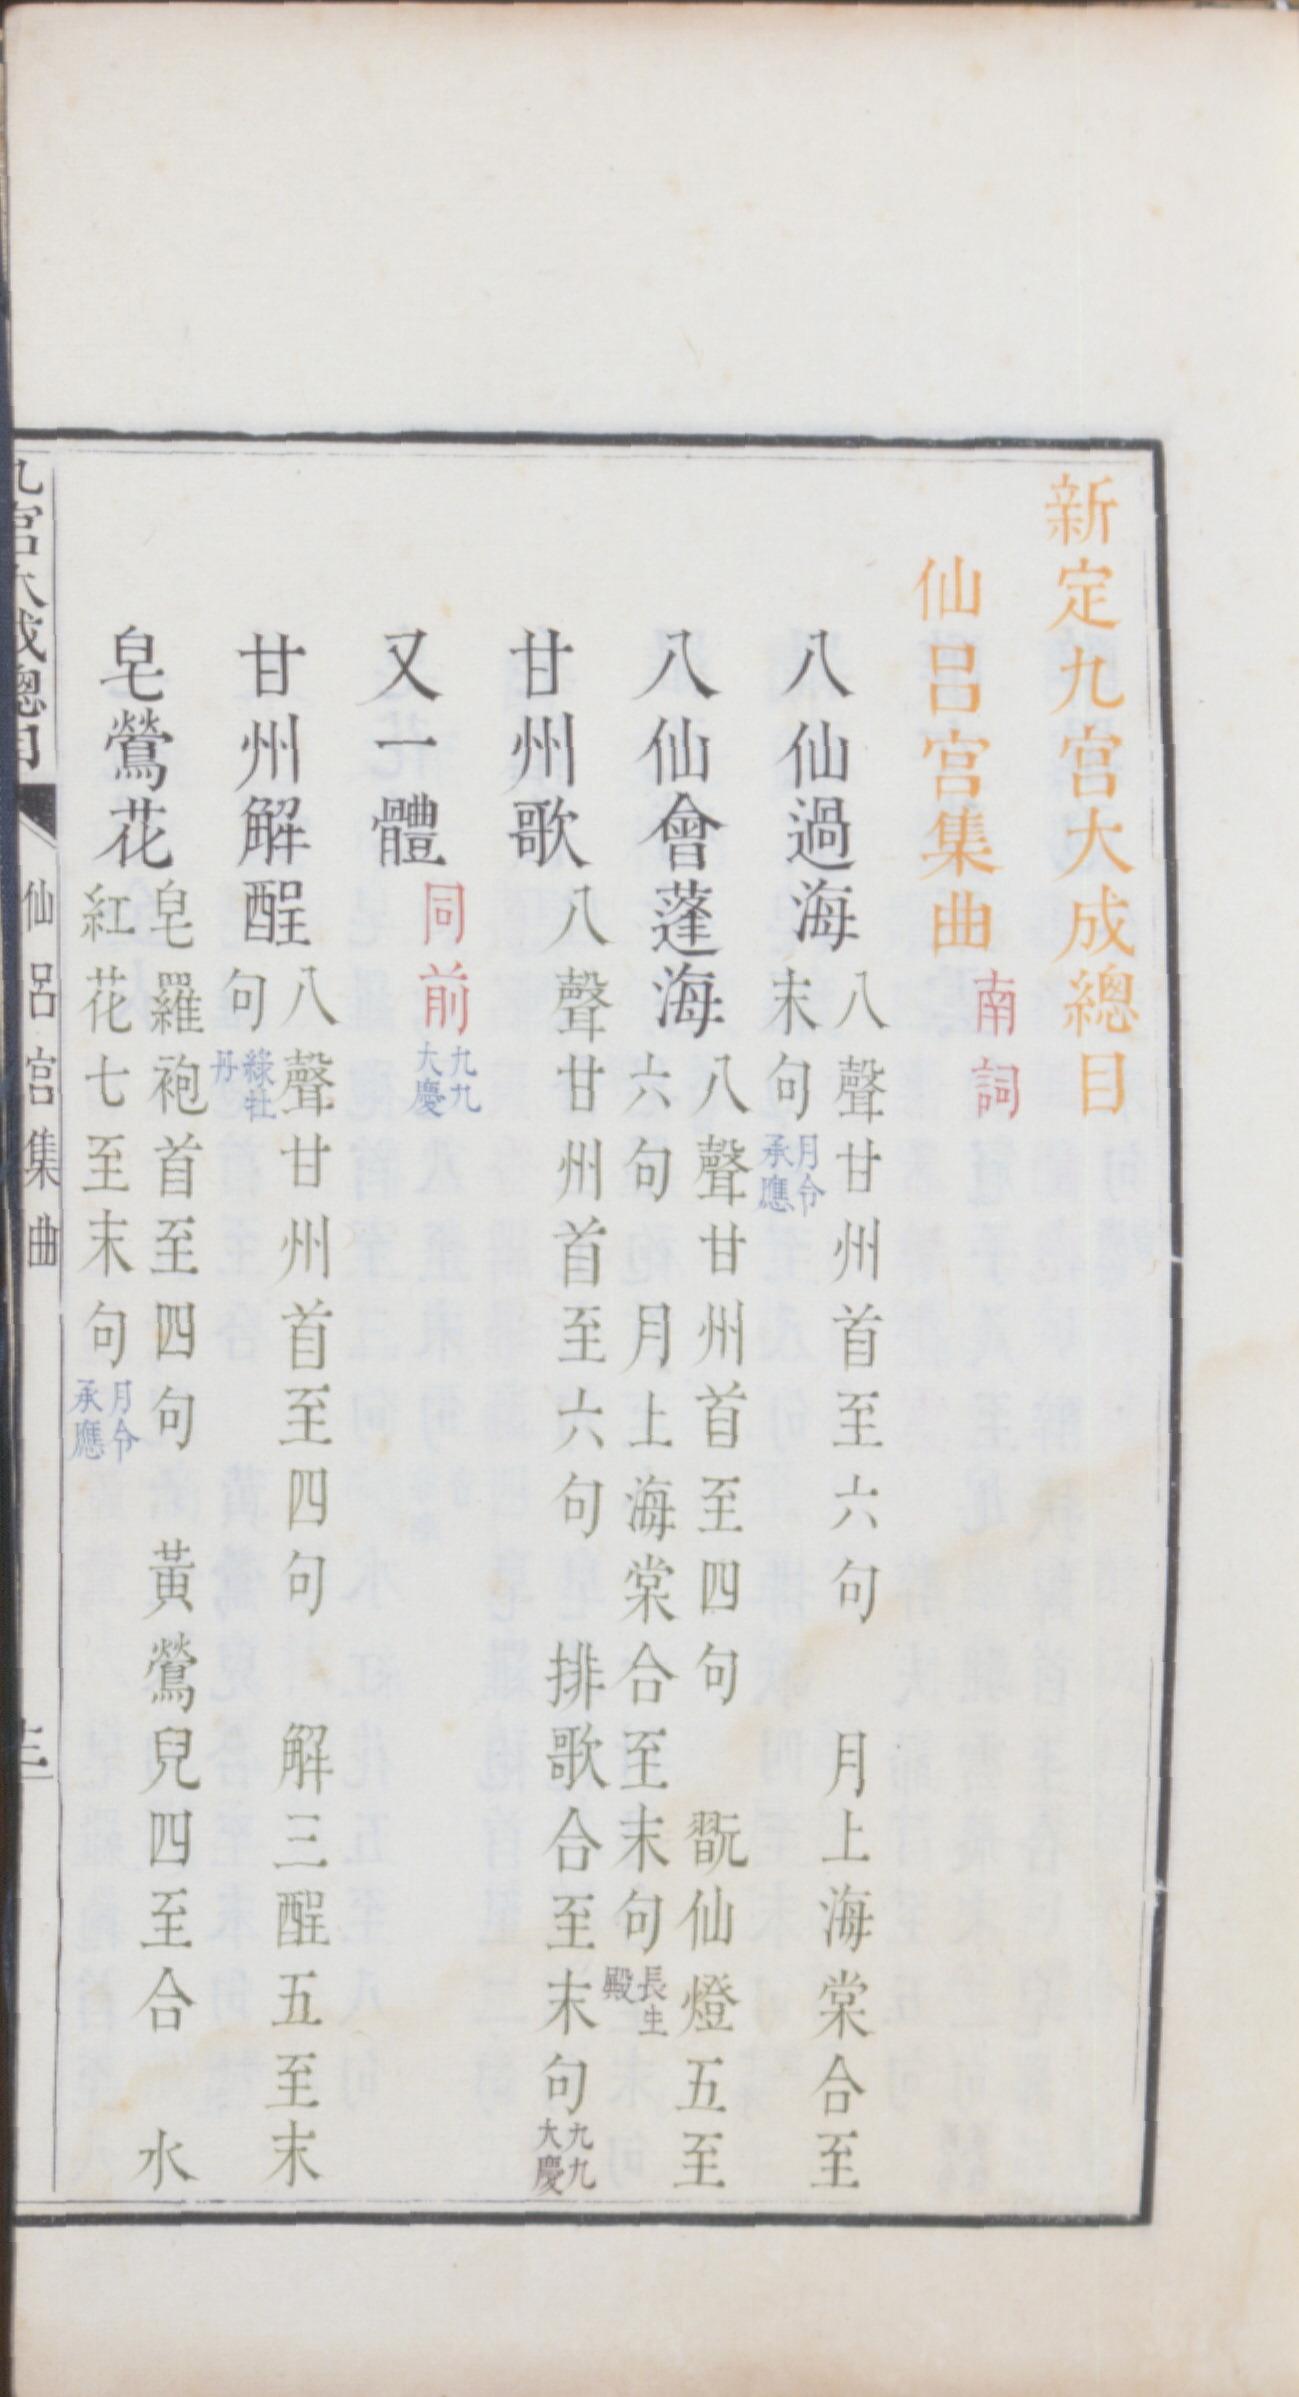 新定九宮大成總目
仙呂宮集曲
南詞
八仙過海
八聲甘州首至六句　月上海棠合至
末句
月令
承應
八仙會蓬海
八聲甘州首至四句　翫仙燈五至
六句　月上海棠合至末句
長生
殿
甘州歌
八聲甘州首至六句　排歌合至末句
九九
大慶
又一體
同前
九九
大慶
甘州解酲
八聲甘州首至四句　解三酲五至末
句
綠牡
丹
皂鶯花
皂羅袍首至四句　黃鶯兒四至合　水
紅花七至末句
月令
承應
九宮大成總目
仙呂宮集曲